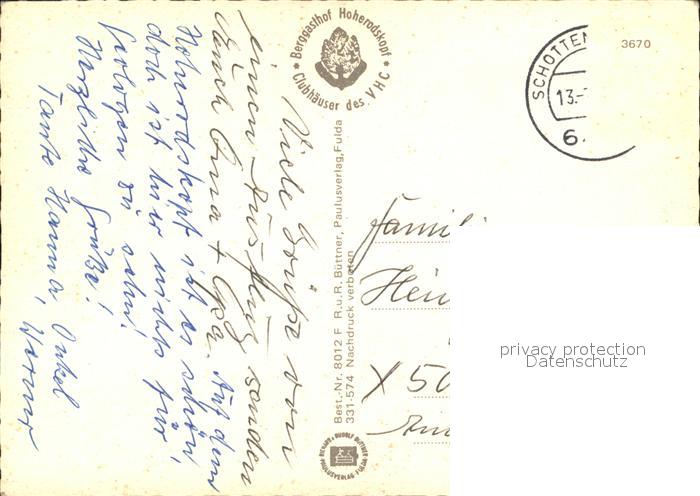 Berggasthof Hoherodskopf
Clubhäuser des VHC
Viele Grüße von
einem Ausflug senden
Euch Oma + Opa. Auf dem
Hoherodskopf ist es schön
doch ist hier nichts für
zu sehn!
Herzliche Grüße!
Tante Hanna, Onkel
Werner
Best.-Nr. 8012 F R.u.R. Büttner, Paulusverlag, Fulda
331-574 Nachdruck verboten
SCHOTTEN
13.-
6.
3670
Famil
Hein
X 50
Am
privacy protection
Datenschutz
RICHARD + RUDOLF BÜTTNER
PAULUSVERLAG FULDA